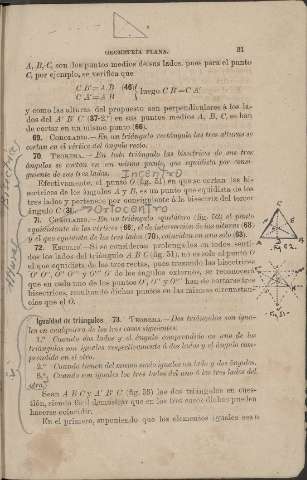 GEOMETRÍA PLANA. 31
A, B, C, son los puntos medios de sus lados, pues para el punto
C, por ejemplo, se verifica que
C B' = A B (46)
C A' = A B
luego C B' = C A'
y como las alturas del propuesto son perpendiculares á los la-
dos del A' B' C' (37-2.º) en sus puntos medios A, B, C, se han
de cortar en un mismo punto (66).
69. COROLARIO.—En un triángulo rectángulo las tres alturas se
cortan en el vértice del ángulo recto.
70. TEOREMA.—En todo triángulo las bisectrices de sus tres
ángulos se cortan en un mismo punto, que equidista por consi-
guiente de sus tres lados. Incentro
Efectivamente, el punto O (fig. 51) en que se cortan las bi-
sectrices de los ángulos A y B, es un punto que equidista de los
tres lados y pertenece por consiguiente á la bisectriz del tercer
ángulo C (3). Ortocentro
71. COROLARIO.—En un triángulo equilátero (fig. 52) el punto
equidistante de los vértices (66), el de intersección de las alturas (68)
y el que equidista de los tres lados (70), coinciden en uno solo (63).
72. ESCOLIO.—Si se consideran prolongados en ambos senti-
dos los lados del triángulo A B C (fig. 51), no es solo el punto O
el que equidista de las tres rectas, pues trazando las bisectrices
de los ángulos externos, se reconocerá
que en cada uno de los puntos O', O'' y O''' han de cortarse tres
bisectrices, resultando dichos puntos en las mismas circunstan-
cias que el O.
Igualdad de triángulos 73. TEOREMA.—Dos triángulos son igua-
les en cualquiera de los tres casos siguientes:
1.º Cuando dos lados y el ángulo comprendido en uno de los
triángulos son iguales respectivamente á dos lados y el ángulo com-
prendido en el otro.
2.º Cuando tienen del mismo modo iguales un lado y dos ángulos.
3.º Cuando son iguales los tres lados del uno á los tres lados del
otro.
Sean A B C y A' B' C' (fig. 53) los dos triángulos en cues-
tión, siendo fácil demostrar que en los tres casos dichos pueden
hacerse coincidir.
En el primero, suponiendo que los elementos iguales sean